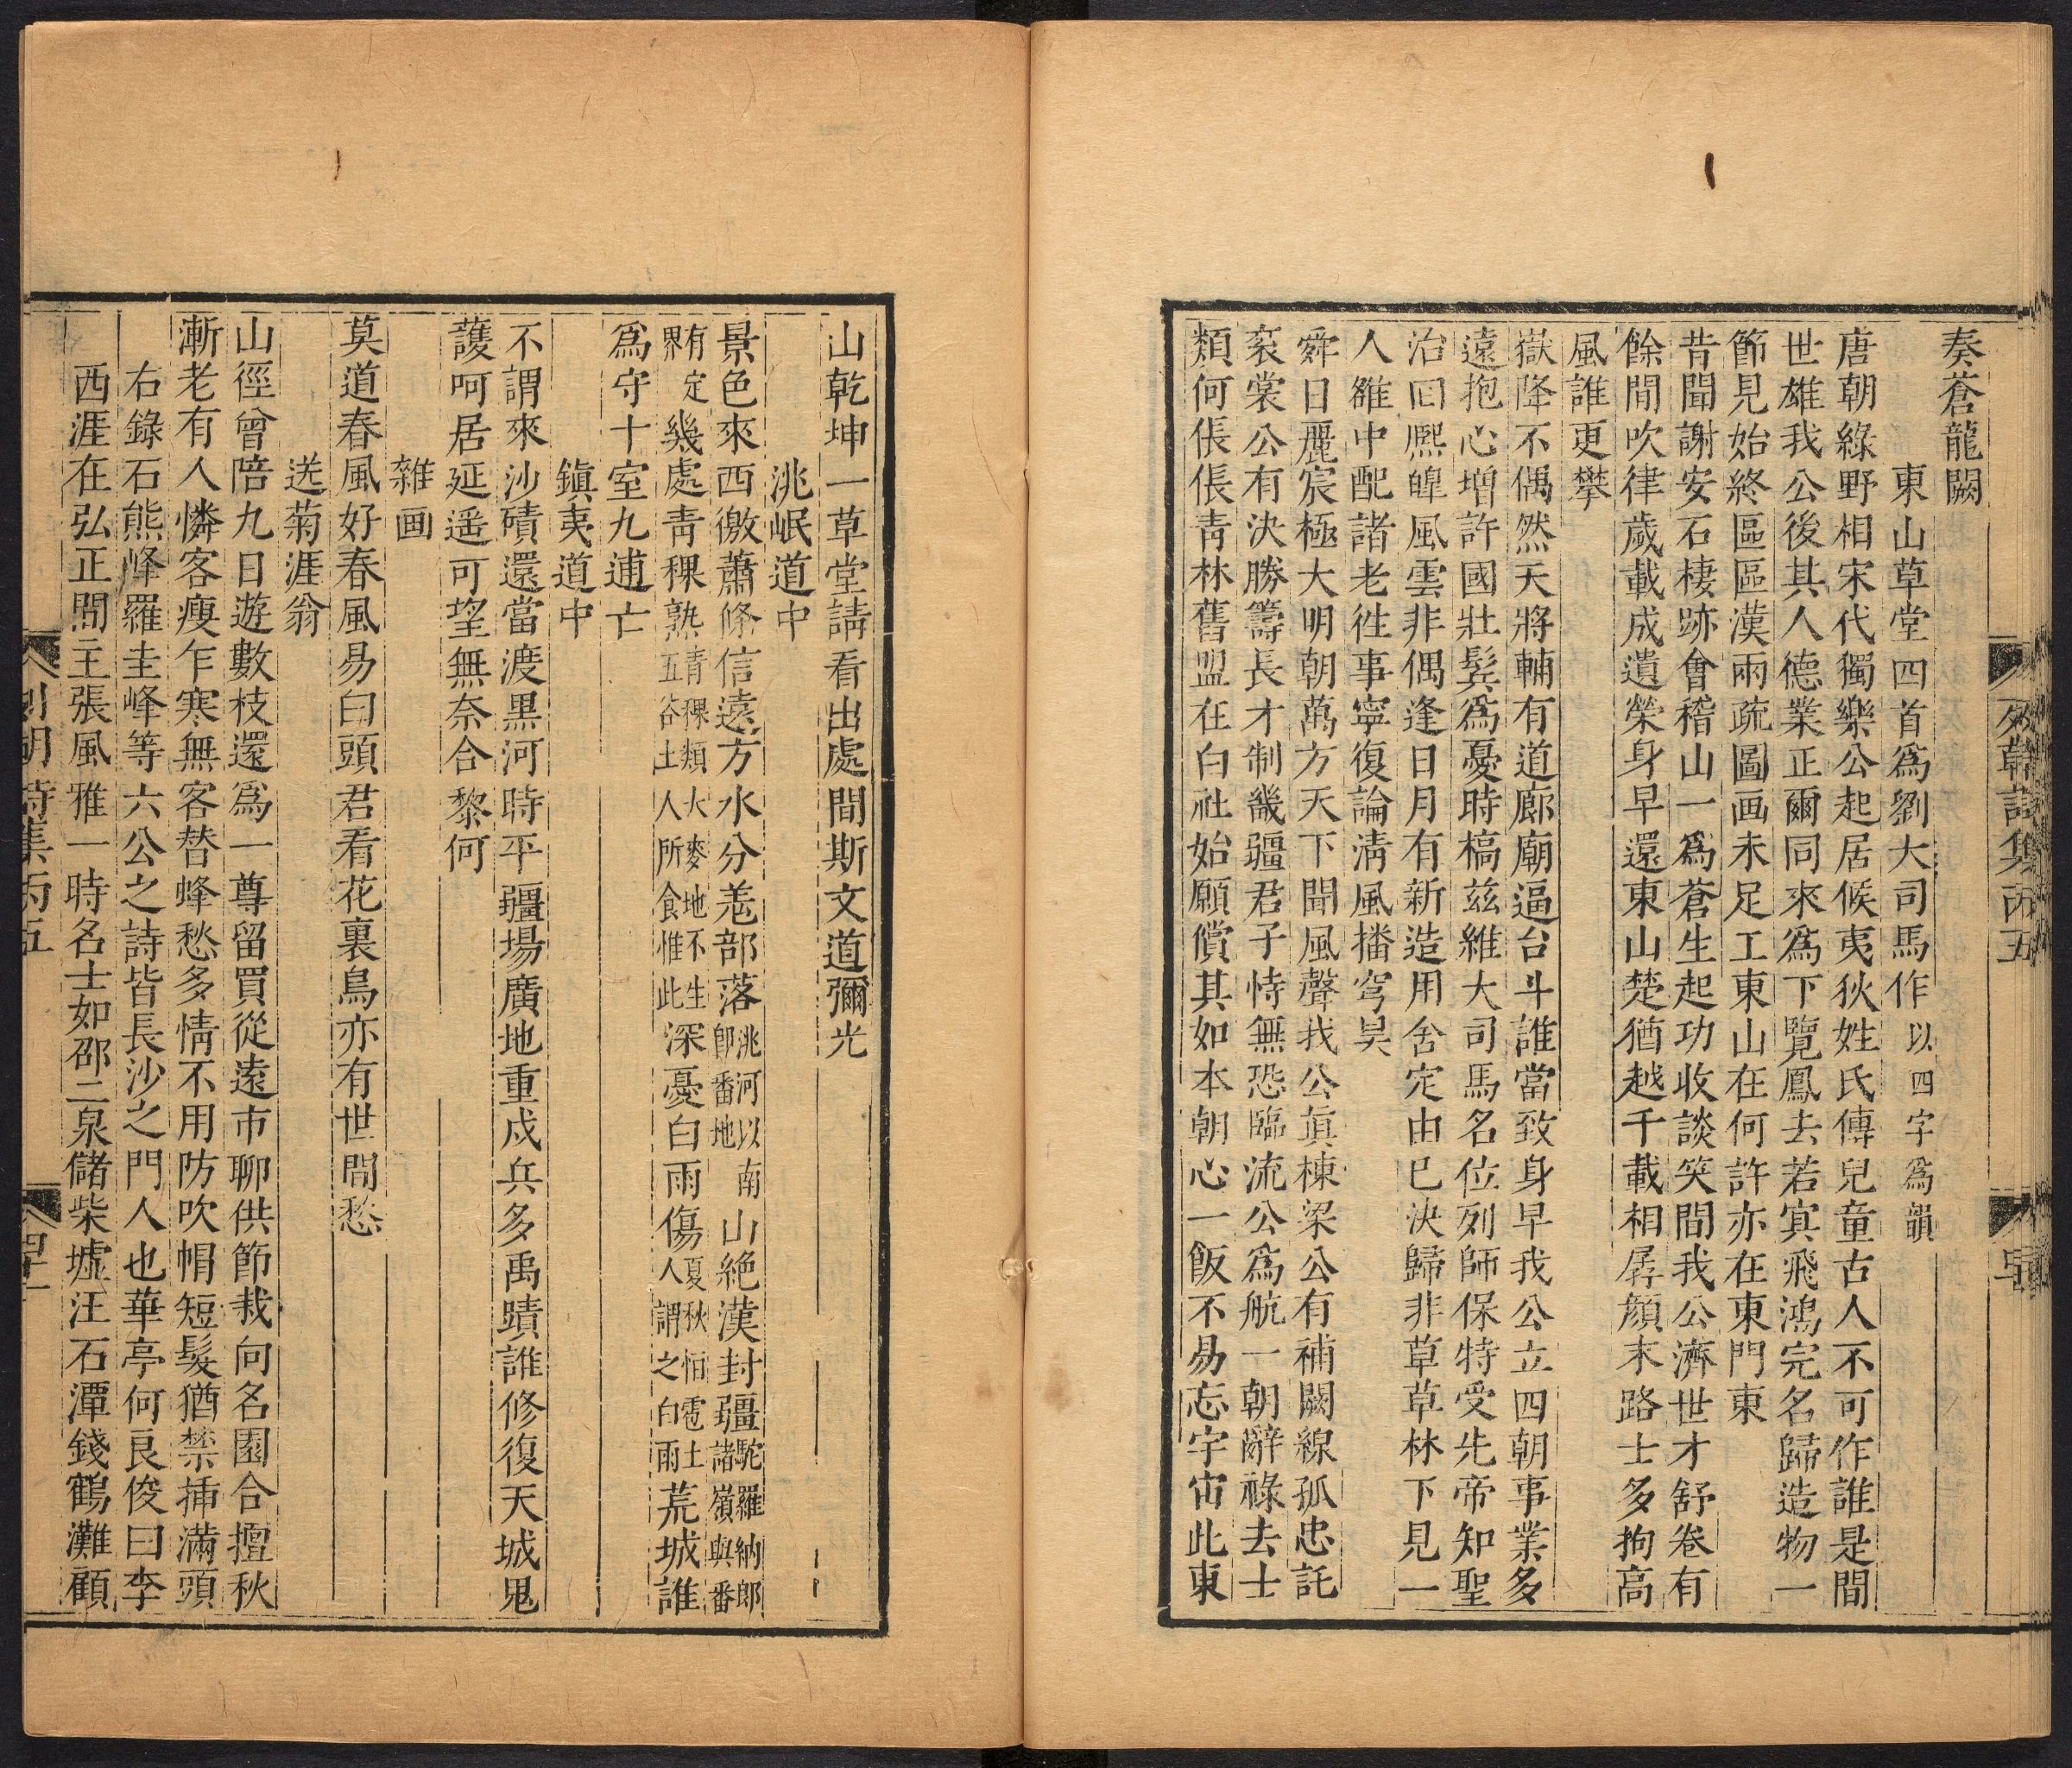 奏蒼龍闕
東山草堂四首爲劉大司馬作以四字爲韻
唐朝綠野相宋代獨樂公起居候夷狄姓氏傳兒童古人不可作誰是間
世雄我公後其人德業正爾同來爲下覽鳳去若冥飛鴻完名歸造物一
節見始終區區漢兩疏圖画未足工東山在何許亦在東門東
昔聞謝安石棲跡會稽山一爲蒼生起功收談笑間我公濟世才舒卷有
餘閒吹律歲載成遺榮身早還東山楚猶越千載相孱顔末路士多拘高
風誰更攀
嶽降不偶然天將輔有道廊廟逼台斗誰當致身早我公立四朝事業多
遠抱心增許國壯髮爲憂時槁茲維大司馬名位列師保特受先帝知聖
治回熈皥風雲非偶逢日月有新造用舍定由已決歸非草草林下見一
人雒中配諸老徃事寧復論淸風播穹昊
舜日麗宸極大明朝萬方天下聞風聲我公眞棟梁公有補闕線孤忠託
袞裳公有決勝籌長才制畿疆君子恃無恐臨流公爲航一朝辭祿去士
類何倀倀靑林舊盟在白社始願償其如本朝心一飯不易忘宇宙此東
山乾坤一草堂請看出處間斯文道彌光
洮岷道中
景色來西徼蕭條信遠方水分羗部落洮河以南卽番地山絶漢封疆駝羅納郎諸嶺與番
有定界幾處靑稞熟靑稞類大麥地不生五谷土人所食惟此深憂白雨傷夏秋恒雹土人謂之白雨荒城誰
爲守十室九逋亡
鎭夷道中
不謂來沙磧還當渡黑河時平疆場廣地重戍兵多禹蹟誰修復天城鬼
護呵居延遥可望無奈合黎何
雜画
莫道春風好春風易白頭君看花裏鳥亦有世間愁
送菊涯翁
山徑曾陪九日遊數枝還爲一尊留買從遠市聊供節栽向名園合擅秋
漸老有人憐客瘦乍寒無客替蜂愁多情不用防吹帽短髮猶禁揷滿頭
右錄石熊峰羅圭峰等六公之詩皆長沙之門人也華亭何良俊曰李
西涯在弘正間主張風雅一時名士如邵二泉儲柴墟汪石潭錢鶴灘顧